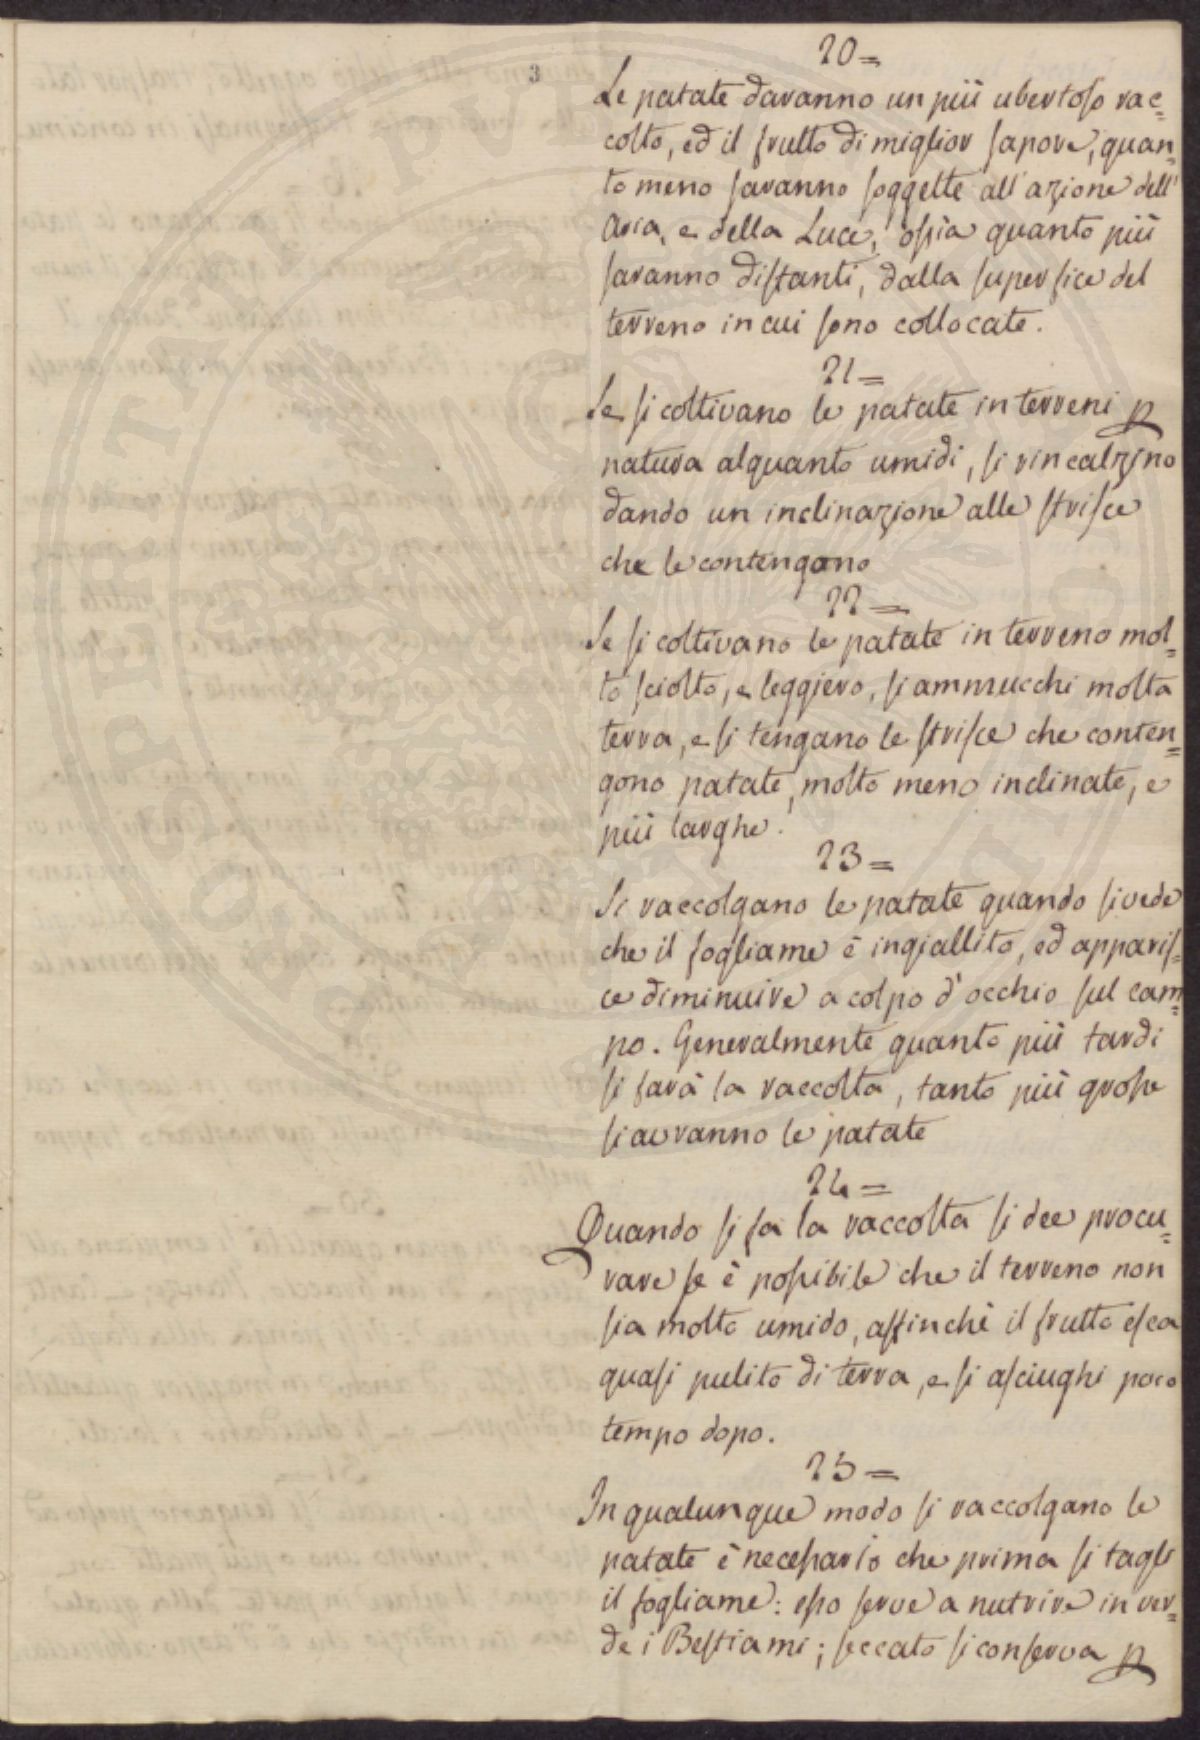 3
20=
Le patate daranno un più ubertoso rac=
colto, ed il frutto di miglior sapore, quan=
to meno saranno soggette all'azione dell'
Aria, e della Luce, ossia quanto più
saranno distanti, dalla superfice del
terreno in cui sono collocate.
21=
Se si coltivano le patate in terreni p
natura alquanto umidi, si rincalzino
dando un inclinazione alle strisce
che le contengono
22=
Se si coltivano le patate in terreno mol=
to sciolto, e leggiero, si ammucchi molta
terra, e si tengano le strisce che conten=
gono patate, molto meno inclinate, e
più larghe.
23=
Si raccolgano le patate quando si vede
che il fogliame è ingiallito, ed apparis=
ce diminuire a colpo d'occhio sul cam=
po. Generalmente quanto più tardi
si farà la raccolta, tanto più grosse
si avranno le patate
24=
Quando si fa la raccolta si dee procu=
rare se è possibile che il terreno non
sia molto umido, affinchè il frutto esca
quasi pulito di terra, e si asciughi poco
tempo dopo.
25=
In qualunque modo si raccolgano le
patate è necessario che prima si tagli
il fogliame: esso serve a nutrire in ver=
de i Bestiami; seccato si conserva p